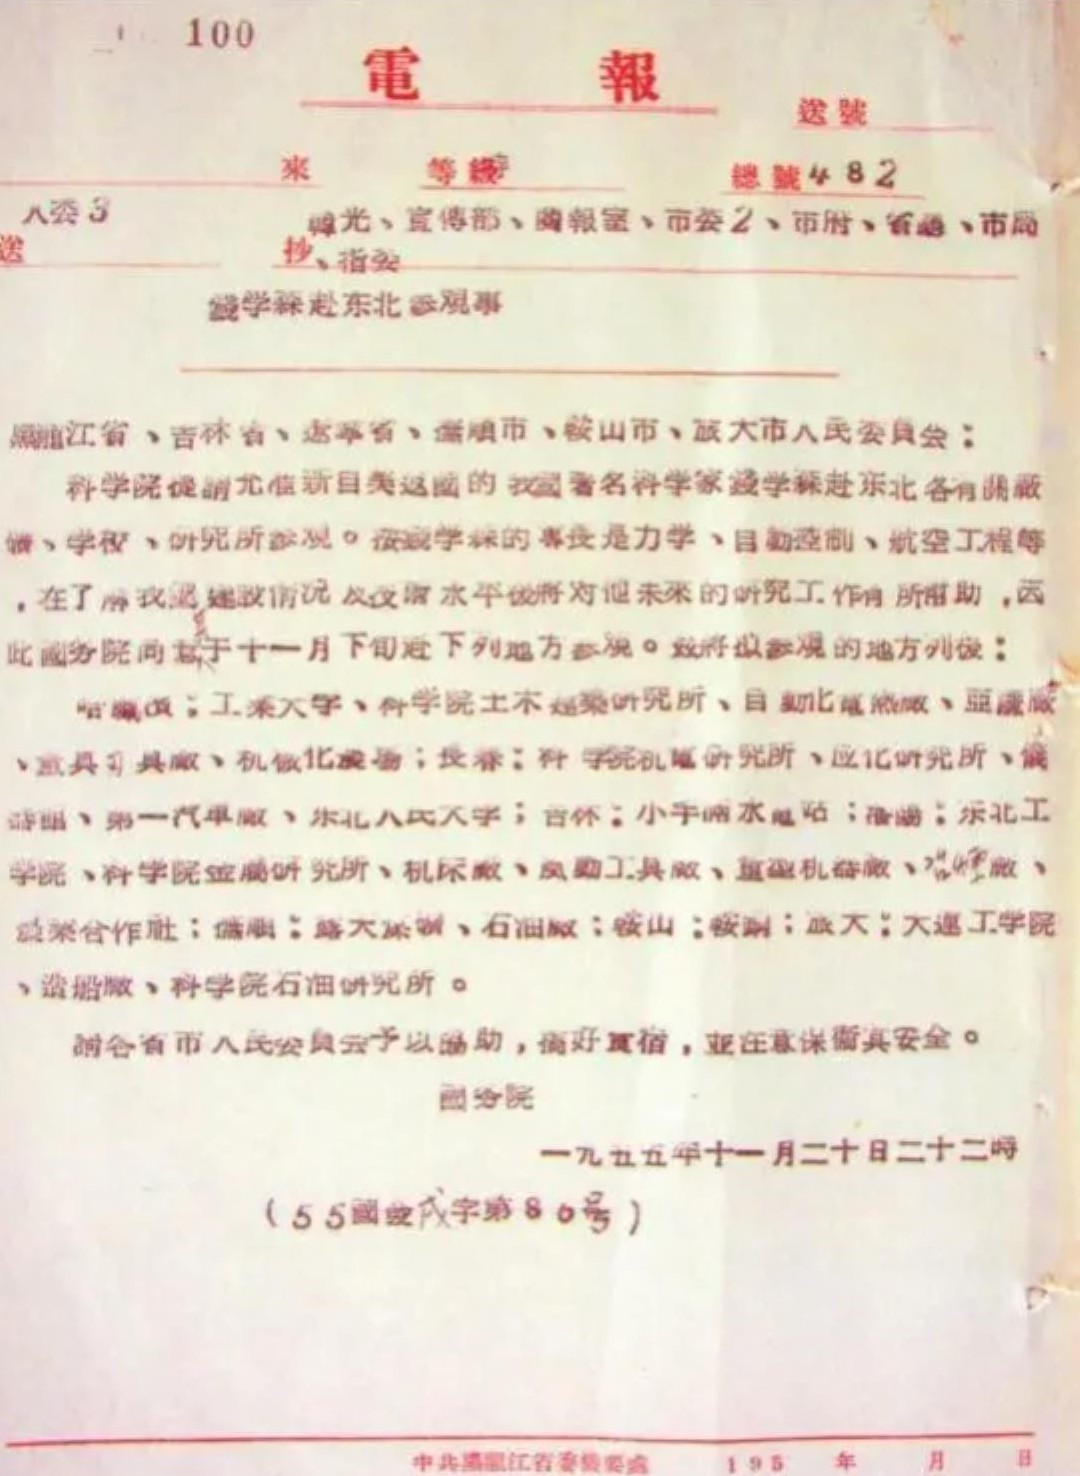 100
電報
送號
來 等級 總號482
人委3
送 抄 韓光、宣傳部、簡報室、市委2、市府、省、市局
、指委
錢学森赴东北参观事
黑龍江省、吉林省、遼寧省、撫順市、鞍山市、旅大市人民委員会：
科学院提請允准新自美返國的我國著名科学家錢学森赴东北各有關廠
礦、学校、研究所参观。按錢学森的專長是力学、自動控制、航空工程等
，在了解我國建設情况及技術水平後將对他未來的研究工作有所幫助，因
此國务院同意于十一月下旬赴下列地方参观。兹將拟参观的地方列後：
哈爾濱：工業大学、科学院土木建築研究所、自動化電熱廠、亞蔴廠
、量具刃具廠、机械化農場；長春：科学院机電研究所、应化研究所、儀
器館、第一汽車廠、东北人民大学；吉林：小丰滿水電站；瀋陽：东北工
学院、科学院金屬研究所、机床廠、風動工具廠、重型机器廠、廠、
農業合作社；撫順：露天煤礦、石油廠；鞍山：鞍鋼；旅大：大連工学院
、造船廠、科学院石油研究所。
請各省市人民委員会予以協助，搞好食宿，並注意保衞其安全。
國务院
一九五五年十一月二十日二十二時
（55國發戌字第80号）
中共黑龍江省委機要處 195 年 月 日